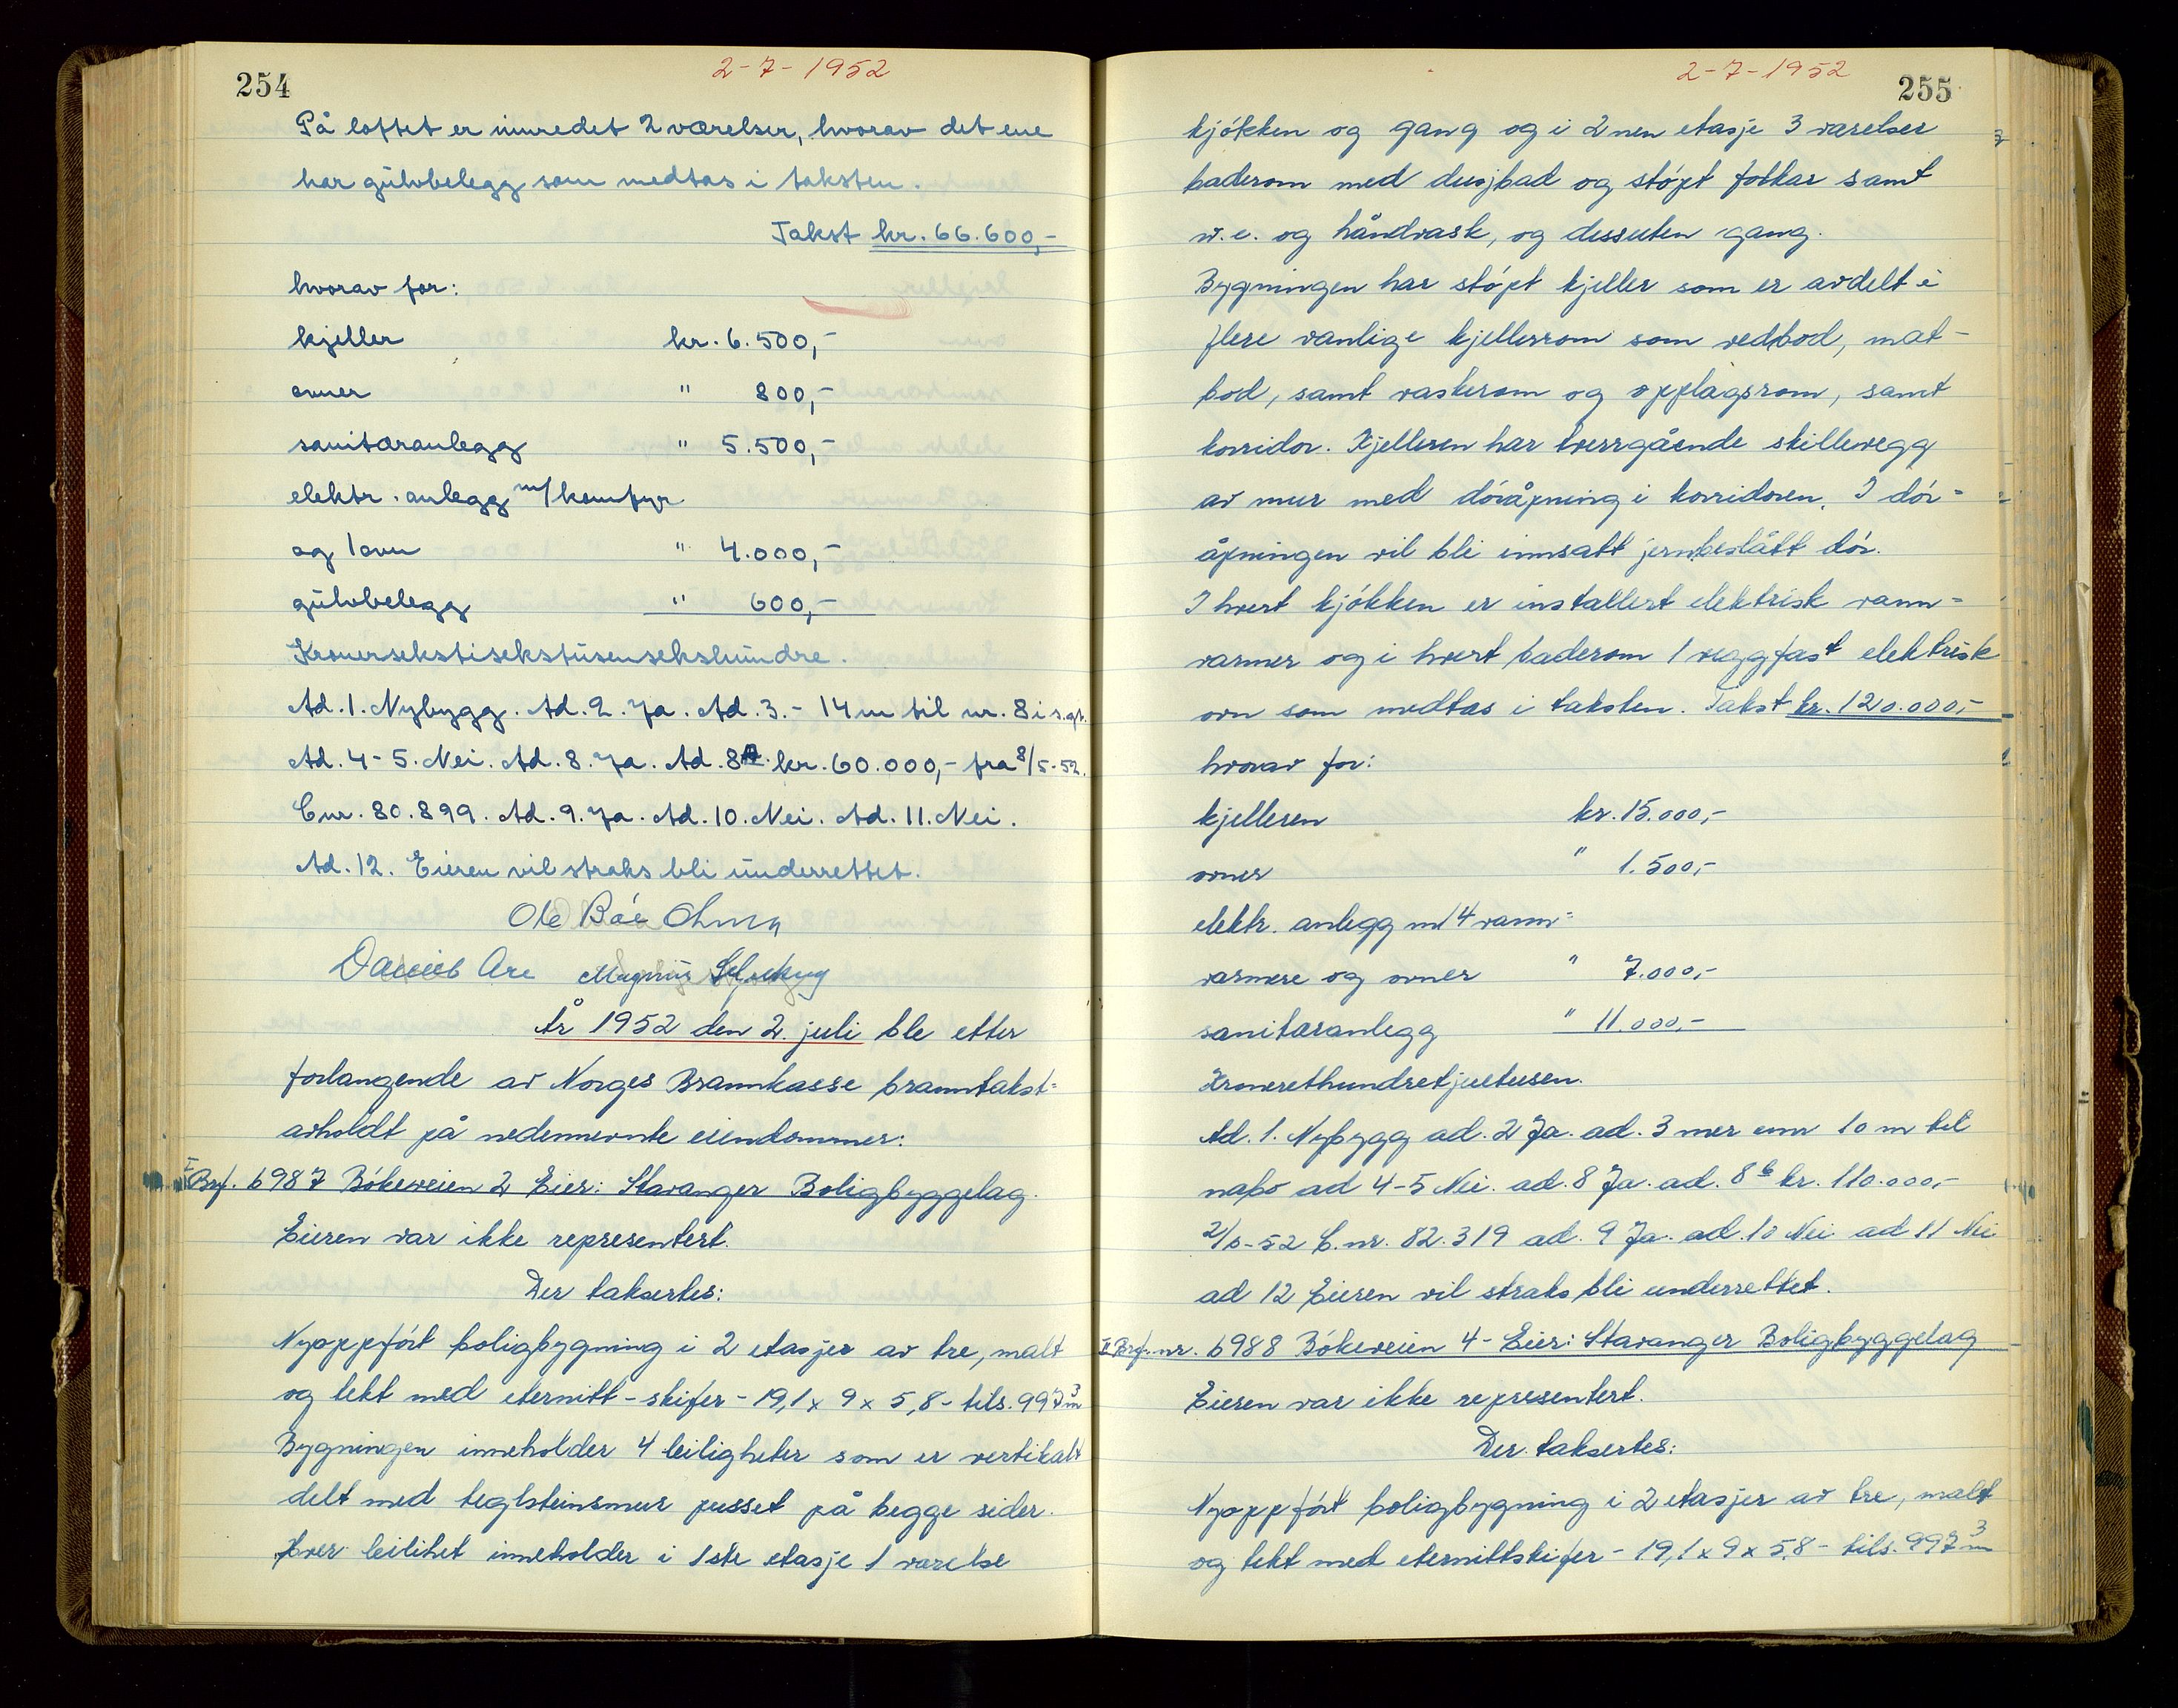 254
2-7-1952
På loftet er innredet 2 værelser, hvorav det ene
har gulvbelegg som medtas i taksten.
Takst kr. 66.600,-
hvorav for:
kjeller kr. 6.500,-
ovner " 800,-
sanitæranlegg " 5.500,-
elektr. anlegg m/komfyr
og 1 ovn " 4.000,-
gulvbelegg " 600,-
Kronersekstisekstusensekshundre.
Ad. 1. Nybygg. Ad. 2. Ja. Ad. 3. - 14 m til nr. 8 i s.gt.
Ad. 4-5. Nei. Ad. 8. Ja. Ad. 8 kr. 60.000,- fra 8/5-52.
C nr. 80.899. Ad. 9. Ja. Ad. 10. Nei. Ad. 11. Nei.
Ad. 12. Eieren vil straks bli underrettet.
Ole Bóe
Magnus
År 1952 den 2. juli ble etter
forlangende av Norges Brannkasse branntakst=
avholdt på nedennevnte eiendommer:
I Brf. 6987 Bókeveien 2 Eier: Stavanger Boligbyggelag.
Eieren var ikke representert.
Der taksertes:
Nyoppfórt boligbygning i 2 etasjer av tre, malt
og tekt med eternitt-skifer - 19,1 x 9 x 5,8 - tils. 997 m³
Bygningen inneholder 4 leiligheter som er vertikalt
delt med teglsteinsmur pusset på begge sider.
Hver leilihet inneholder i 1ste etasje 1 værelse
2-7-1952
255
kjókken og gang og i 2nen etasje 3 værelser
baderom med dusjbad og stópt fotkar samt
w.c. og håndvask, og dessuten gang.
Bygningen har stópt kjeller som er avdelt i
flere vanlige kjellerrom som vedbod, mat-
bod, samt vaskerom og opplagsrom, samt
korridor. Kjelleren har tverrgående skillevegg
av mur med dóråpning i korridoren. I dór=
åpningen vil bli innsatt jernbeslått dór.
I hvert kjókken er installert elektrisk vann=
varmer og i hvert baderom 1 veggfast elektrisk
ovn som medtas i taksten. Takst kr. 120.000,-
hvorav for:
kjelleren kr. 15.000,-
ovner " 1.500,-
elektr. anlegg m/4 vann=
varmere og ovner " 7.000,-
sanitæranlegg " 11.000,-
Kroneretthundretjuetusen.
Ad. 1. Nybygg ad. 2 Ja. ad. 3 mer enn 10 m til
nabo ad 4-5 Nei. ad. 8 Ja. ad. 8 b kr. 110.000,-
2/6-52 C.nr. 82.319 ad. 9 Ja. ad. 10 Nei ad 11 Nei
ad 12 Eieren vil straks bli underrettet.
II Brf.nr. 6988 Bókeveien 4 - Eier: Stavanger Boligbyggelag
Eieren var ikke representert.
Der taksertes:
Nyoppfórt boligbygning i 2 etasjer av tre, malt
og tekt med eternittskifer - 19,1 x 9 x 5,8 - tils. 997 m³